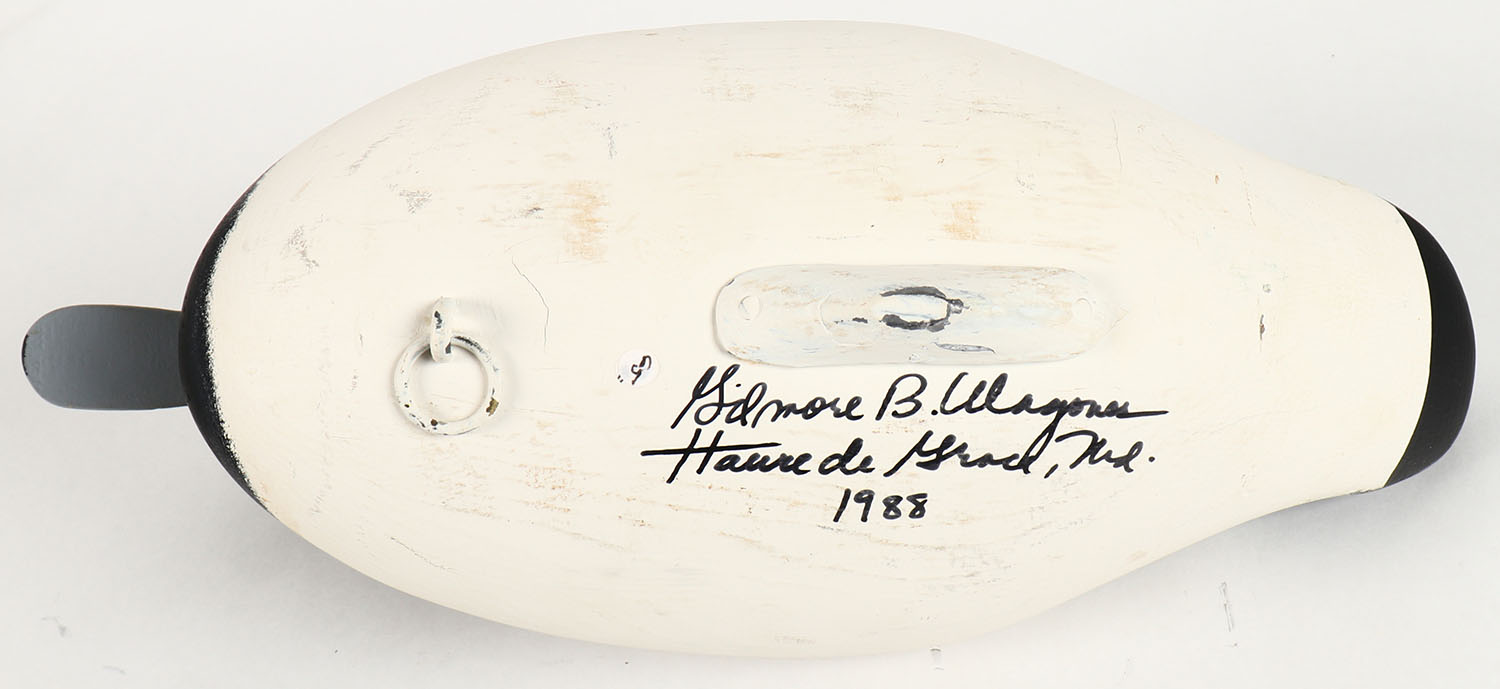 Gilmore B. Wagoner
Havre de Grace, Md.
1988